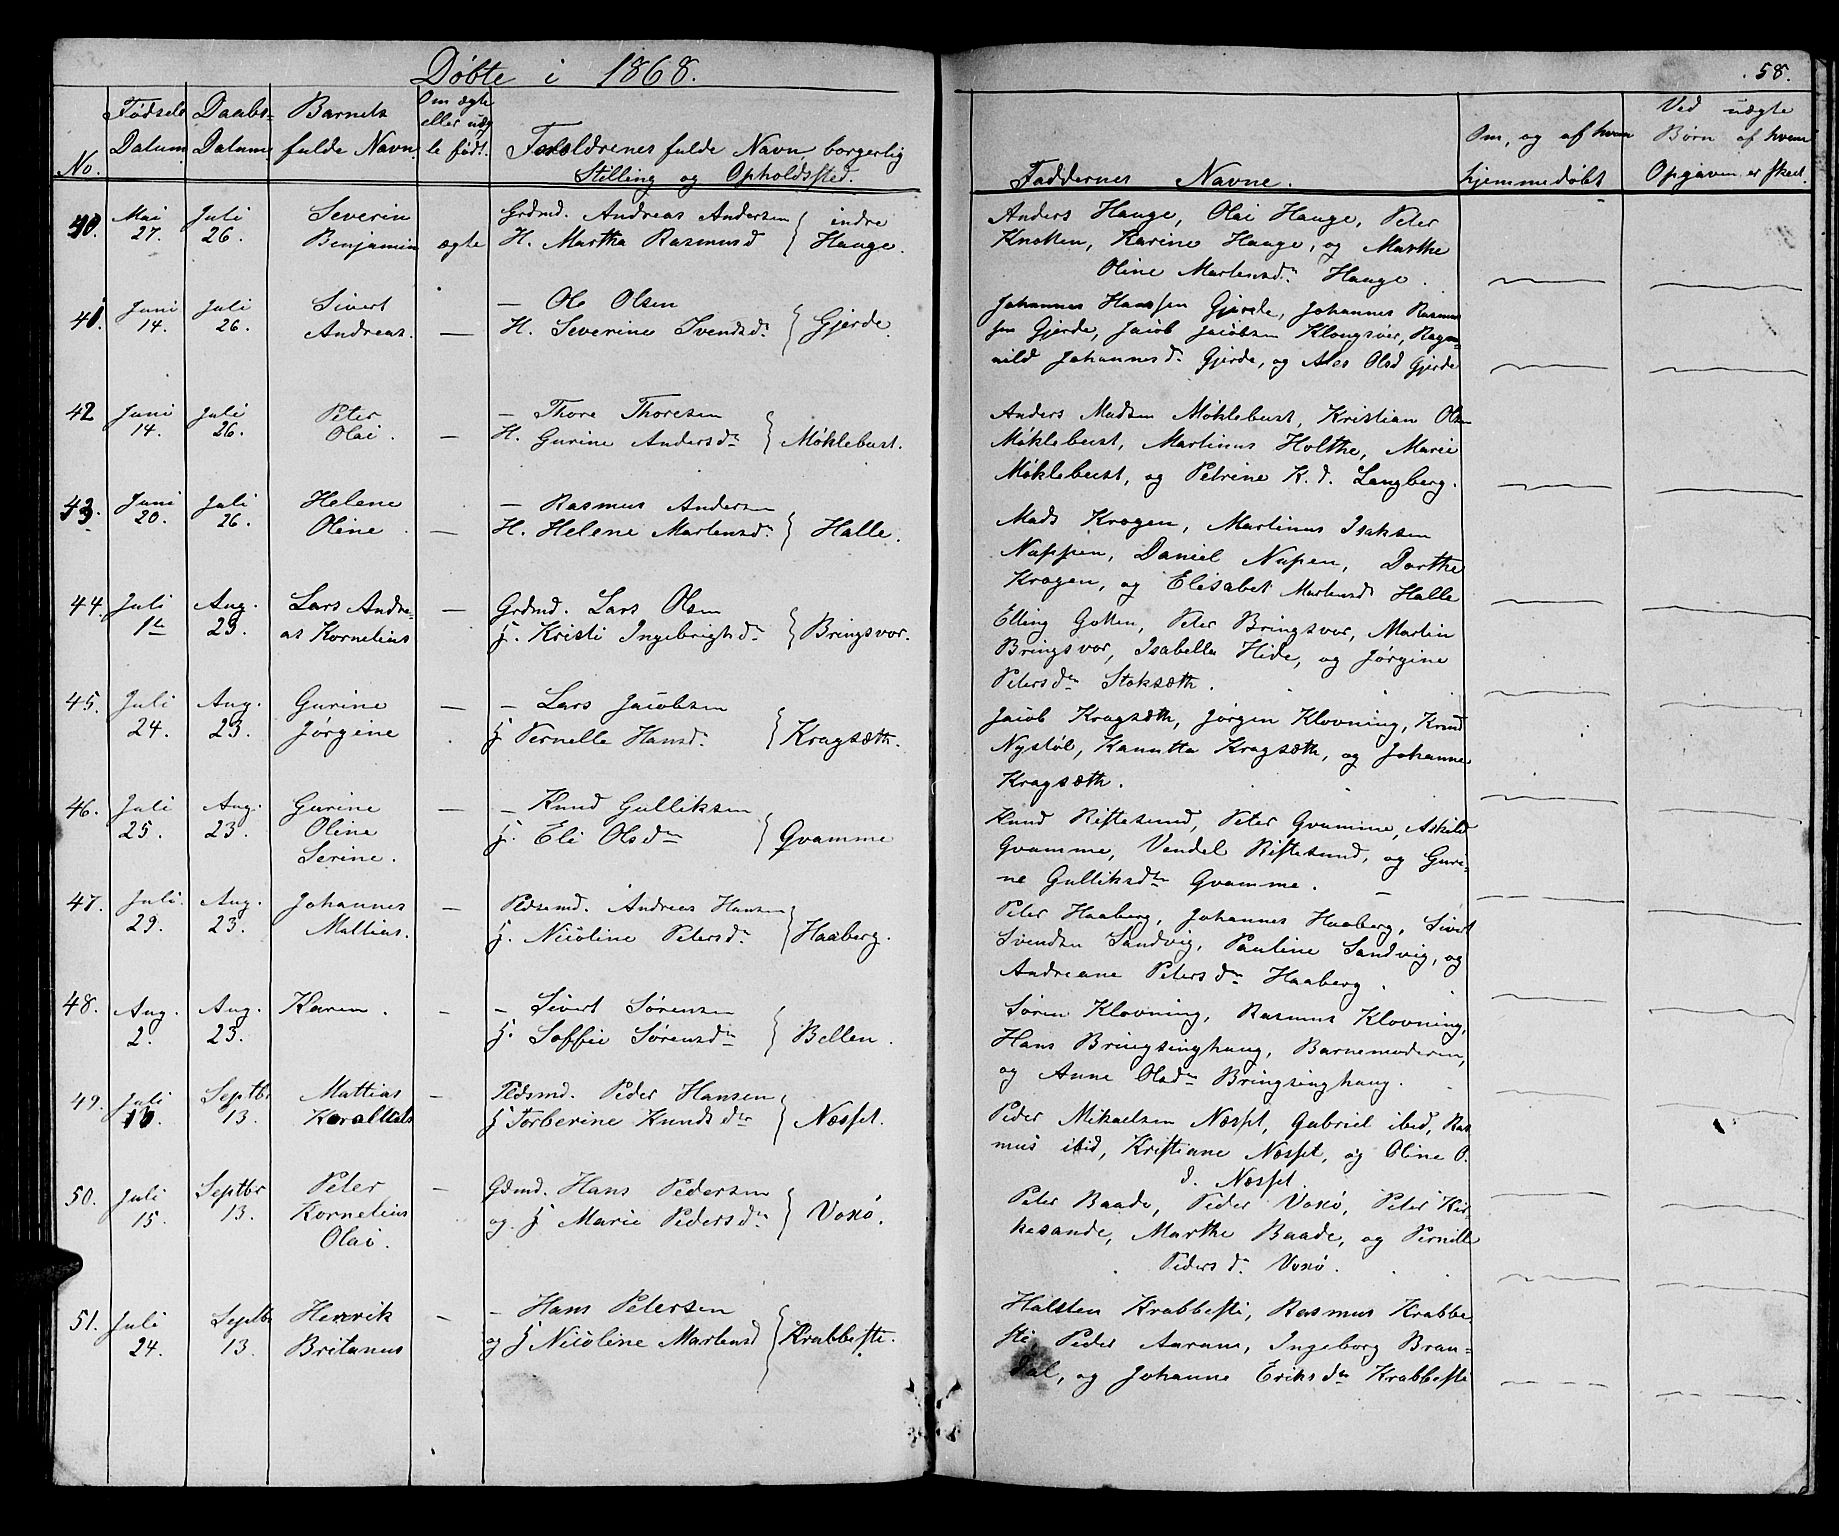 Døbte i 1868.
58.
No.
Fødsels Datum
Daabs- Datum
Barnets fulde Navn
Om ægte eller uægte født.
Forældrenes fulde Navn, borgerlig Stilling og Opholdssted.
Faddernes Navne.
Om, og af hvem hjemmedøbt
Ved uægte Børn af hvem Opgaven er skeet.
40. Mai 27. Juli 26. Severin Benjamin ægte
Grdmd. Andreas Andersen
H. Martha Rasmusd } indre Hauge.
Anders Hauge, Olai Hauge, Peter
Knotten, Karine Hauge, og Marthe
Oline Martensdr. Hauge.
41. Juni 14. Juli 26. Sivert Andreas. —
— Ole Olsen
H. Severine Svendsdr } Gjerde.
Johannes Hanssen Gjerde, Johannes Rasmus
sen Gjerde, Jacob Jacobsen Klongsøer, Ragn-
nild Johannesd. Gjerde, og Ales Olsd Gjerde
42 Juni 14. Juli 26. Peter Olai. —
— Thore Thoresen
H. Gurine Andersdr } Møklebust.
Anders Madsen Møklebust, Kristian Olsen
Møklebust, Martinus Holthe, Marie
Møklebust, og Petrine K. d. Langberg.
43. Juni 20. Juli 26. Helene Oline. —
— Rasmus Andersen
H. Helene Martensdr } Halle.
Mads Kragen, Martinus Isaksen
Nappen, Daniel Nupen, Dorthe
Kragen, og Elisabet Martensd Halle
44. Juli 1te Aug. 23. Lars Andre- as Kornelius —
Grdmd. Lars Olsen
H. Kristi Ingebrigtsdr } Bringsvor.
Elling Gotten, Peter Bringsvor, Martin
Bringsvor, Isabella Hide, og Jørgine
Petersdr Stoksæth.
45. Juli 24. Aug. 23. Gurine Jørgine —
— Lars Jacobsen
H Pernelle Hansdr } Kragsæth.
Jacob Kragsæth, Jørgen Klovning, Knud
Nystøl, Kanutta Kragsæth, og Johanne
Kragsæth.
46. Juli 25. Aug. 23. Gurine Oline Serine. —
— Knud Gulliksen
H. Eli Olsdr } Qvamme
Knud Riftesund, Peter Gvamme, Askild
Gvamme, Vendel Riftesund, og Guri-
ne Gulliksdtr Gvamme.
47. Juli. 29. Aug. 23. Johannes Mattias. —
Pldsemd. Andreas Hansen
H. Nicoline Petersdr } Haaberg.
Peter Haaberg, Johannes Haaberg, Sivert
Svendsen Sandvig, Pauline Sandvig, og
Andreane Petersdr Haaberg.
48. Aug. 2. Aug. 23. Karen. —
— Sivert Sørensen
H. Soffie Sørensdr } Bellen.
Søren Klovning, Rasmus Klovning,
Hans Bringsinghaug, Barnemoderen,
og Anne Olsdr Bringsinghaug.
49. Juli Septbr 13. Mattias —
Pldsmd. Peder Hansen
H Torberine Knudsdtr } Næsset.
Peder Mikaelsen Næsset, Gabriel ibid, Ras
mus ibid, Kristiane Næsset, og Oline O.
d. Næsset.
50. Juli 15. Septbr 13. Peter Kornelius Olai. —
Gdmd. Hans Pedersen
og H Marie Pedersdr } Voxø.
Peter Baade, Peder Voxø, Peter Kir
kesande, Marthe Baade, og Pernille
Pedersd. Voxø.
51. Juli 24. Septbr 13. Henrik Britanus —
— Hans Petersen
og H Nicoline Martensd } Krabbesti.
Halsten Krabbesti, Rasmus Krabbe
sti Peder Aaram, Ingeborg Bran-
dal, og Johanne Eriksdr Krabbesti